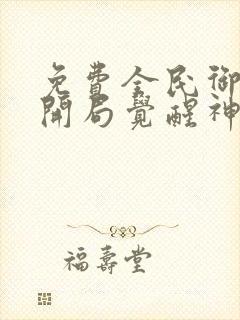 免費全民御
開局覺醒神
福壽堂